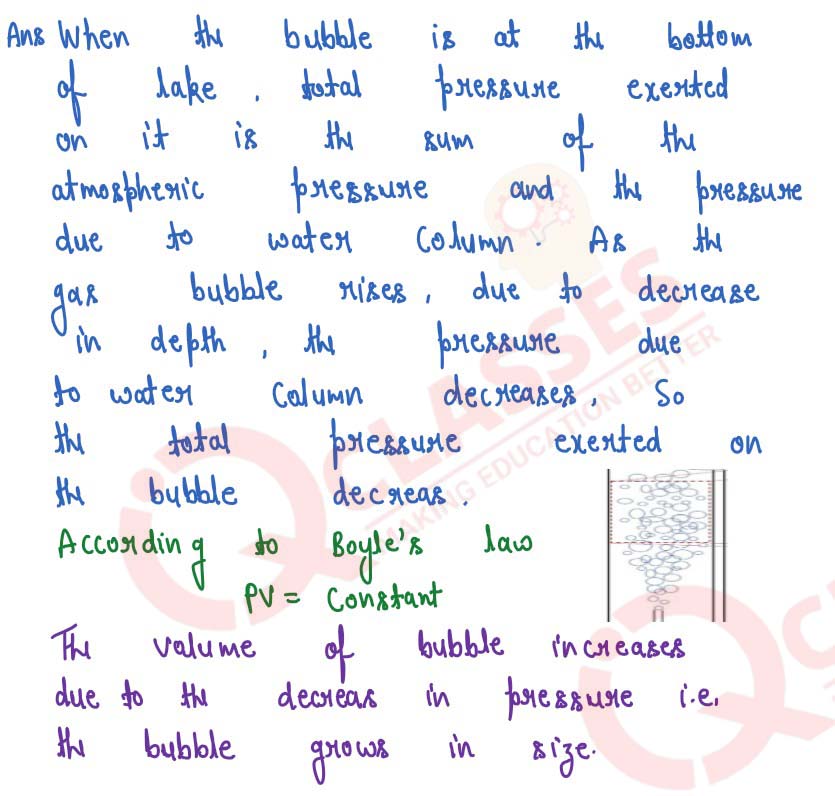 Ans When the bubble is at the bottom
of lake, total pressure exerted
on it is the sum of the
atmospheric pressure and the pressure
due to water column. As the
gas bubble rises, due to decrease
in depth, the pressure due
to water column decreases, So
the total pressure exerted on
the bubble decreas.
According to Boyle's law
PV = Constant
The volume of bubble increases
due to the decreas in pressure i.e.
the bubble grows in size.
IQ CLASSES
MAKING EDUCATION BETTER